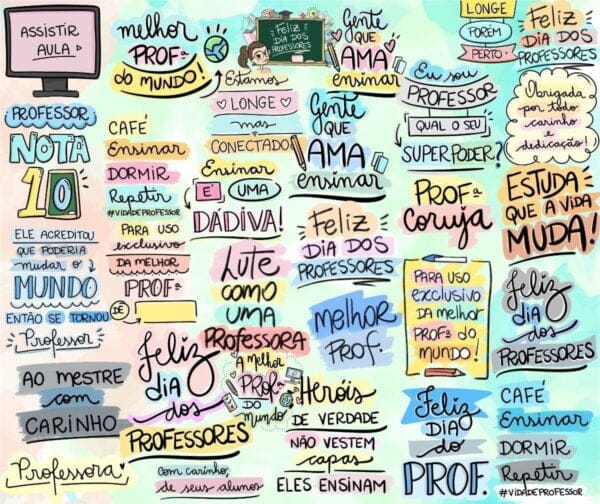 ASSISTIR
AULA
melhor
PROFª
do MUNDO!
FELIZ
DIA DOS
PROFESSORES
Gente
QUE
AMA
ensinar
LONGE
PORÉM
PERTO
Feliz
DIA DOS
PROFESSORES
Estamos
LONGE
mas
CONECTADOS
Eu sou
PROFESSOR
QUAL O SEU
SUPERPODER?
Obrigada
por todo
carinho
e
dedicação!
PROFESSOR
NOTA
10
CAFÉ
Ensinar
DORMIR
Repetir
#VIDADEPROFESSOR
Gente
QUE
AMA
ensinar
Ensinar
É UMA
DÁDIVA!
PROFª
Coruja
ESTUDA
QUE A VIDA
MUDA!
ELE ACREDITOU
QUE PODERIA
mudar o
MUNDO
ENTÃO SE TORNOU
Professor
PARA USO
exclusivo
DA MELHOR
PROFª
DE
Feliz
DIA DOS
PROFESSORES
Lute
COMO
UMA
PROFESSORA
melhor
PROF.
PARA USO
exclusivo
DA melhor
PROFª do
MUNDO!
Feliz
DIA
dos
PROFESSORES
AO MESTRE
com
CARINHO
Feliz
DIA
dos
PROFESSORES
A melhor
PROFª
DO
mundo
Heróis
DE VERDADE
NÃO VESTEM
capas
ELES ENSINAM
Feliz
DIA
do
PROF.
CAFÉ
Ensinar
DORMIR
Repetir
#VIDADEPROFESSOR
Professora
Com carinho,
de seus alunos